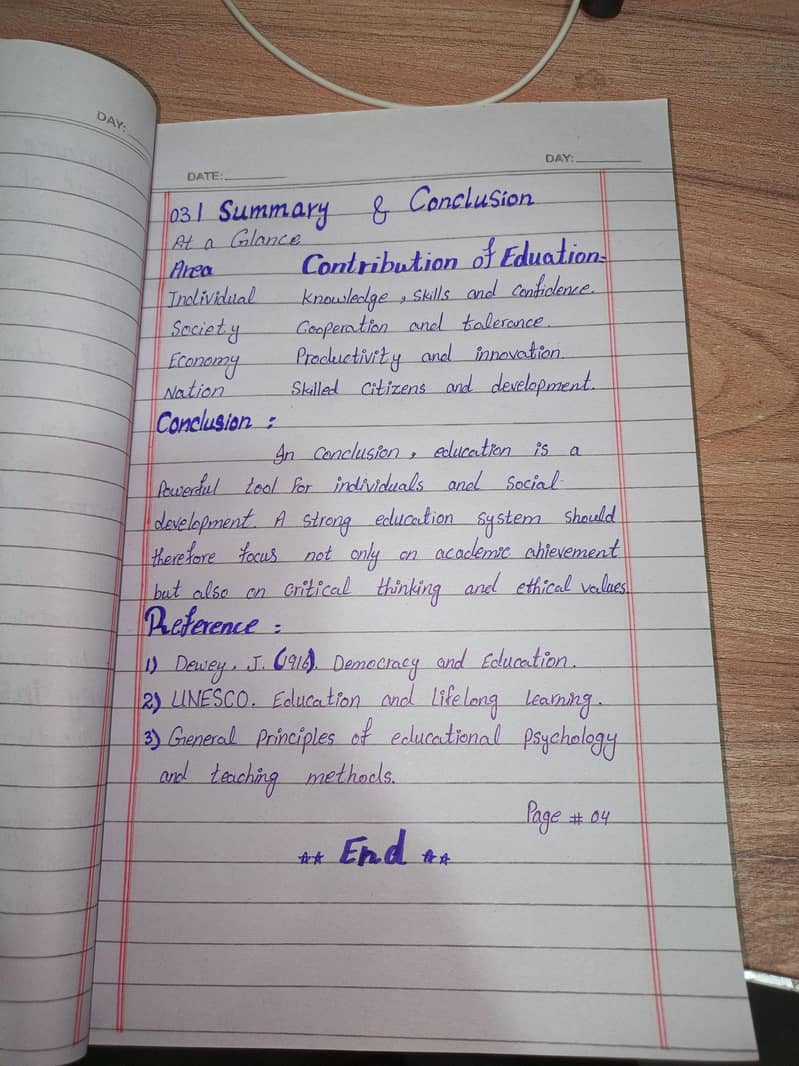 DAY:
DATE:
DAY:
03| Summary & Conclusion
At a Glance
Area Contribution of Eduation
Individual knowledge, skills and confidence.
Society Cooperation and tolerance.
Economy Productivity and innovation.
Nation Skilled Citizens and development.
Conclusion :
In conclusion, education is a
Powerful tool for individuals and Social
development. A strong education system should
therefore focus not only on academic ahievement
but also on critical thinking and ethical values.
Reference :
1) Dewey, J. (1916). Democracy and Education.
2) UNESCO. Education and lifelong learning.
3) General principles of educational psychology
and teaching methods.
Page # 04
** End **